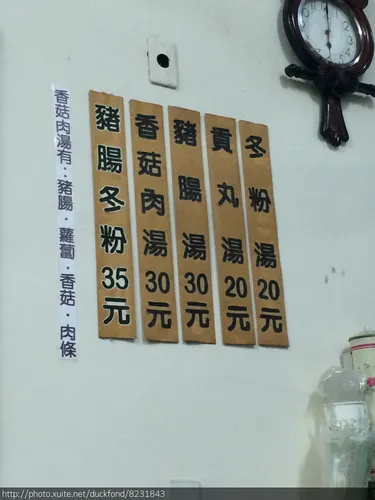 冬粉湯20元
貢丸湯20元
豬腸湯30元
香菇肉湯30元
豬腸冬粉35元
香菇肉湯有:豬腸·蘿蔔·香菇·肉條
http://photo.xuite.net/duckfond/8231843